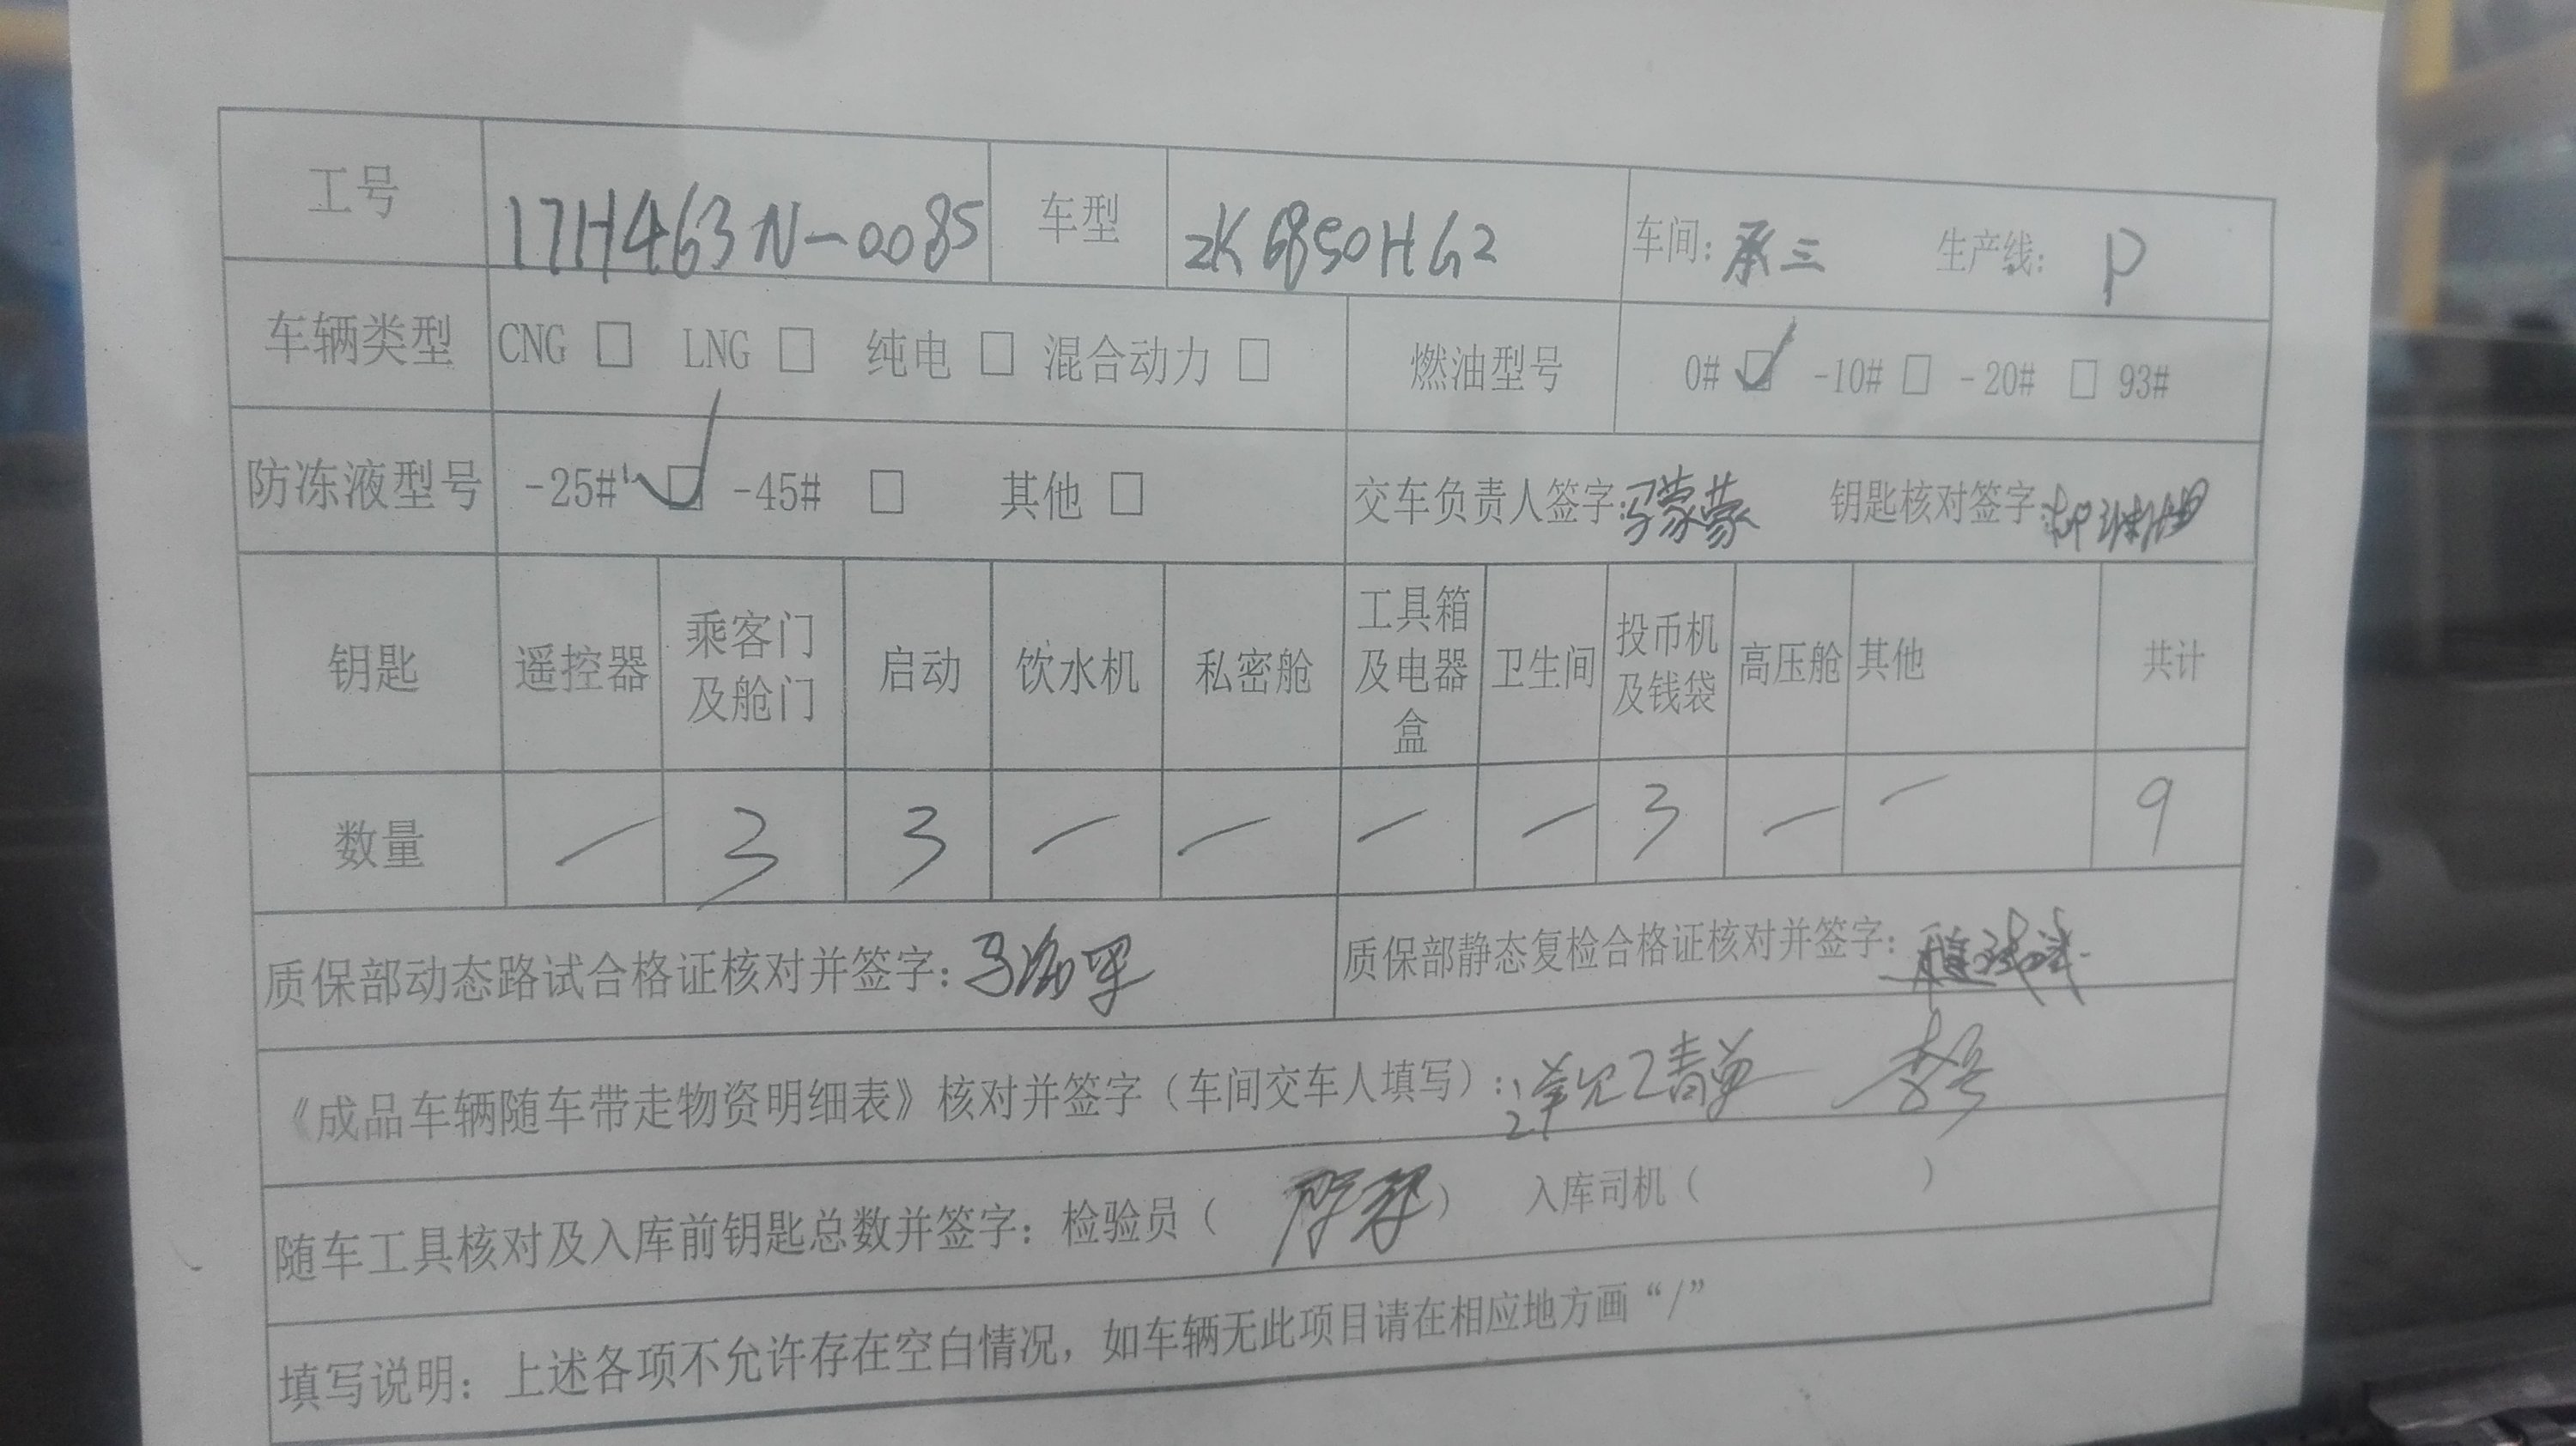 工号 17H463N-0085 车型 ZK6850HG2 车间：承三 生产线： P
车辆类型 CNG □ LNG □ 纯电 □ 混合动力 □ 燃油型号 0# ☑ -10# □ -20# □ 93#
防冻液型号 -25# ☑ -45# □ 其他 □ 交车负责人签字：冯蒙蒙 钥匙核对签字：
钥匙 遥控器 乘客门及舱门 启动 饮水机 私密舱 工具箱及电器盒 卫生间 投币机及钱袋 高压舱 其他 共计
数量 / 3 3 / / / / 3 / / 9
质保部动态路试合格证核对并签字： 质保部静态复检合格证核对并签字：
《成品车辆随车带走物资明细表》核对并签字（车间交车人填写）：
随车工具核对及入库前钥匙总数并签字：检验员（ ） 入库司机（ ）
填写说明：上述各项不允许存在空白情况，如车辆无此项目请在相应地方画“/”